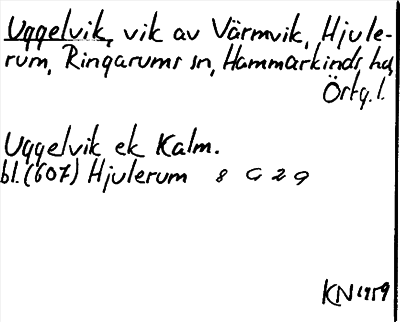 Uggelvik, vik av Värmvik, Hjule-
rum, Ringarums sn, Hammarkinds hd,
Östg.l.
Uggelvik ek Kalm.
bl.(607) Hjulerum 8 G 2 g
KN 1959